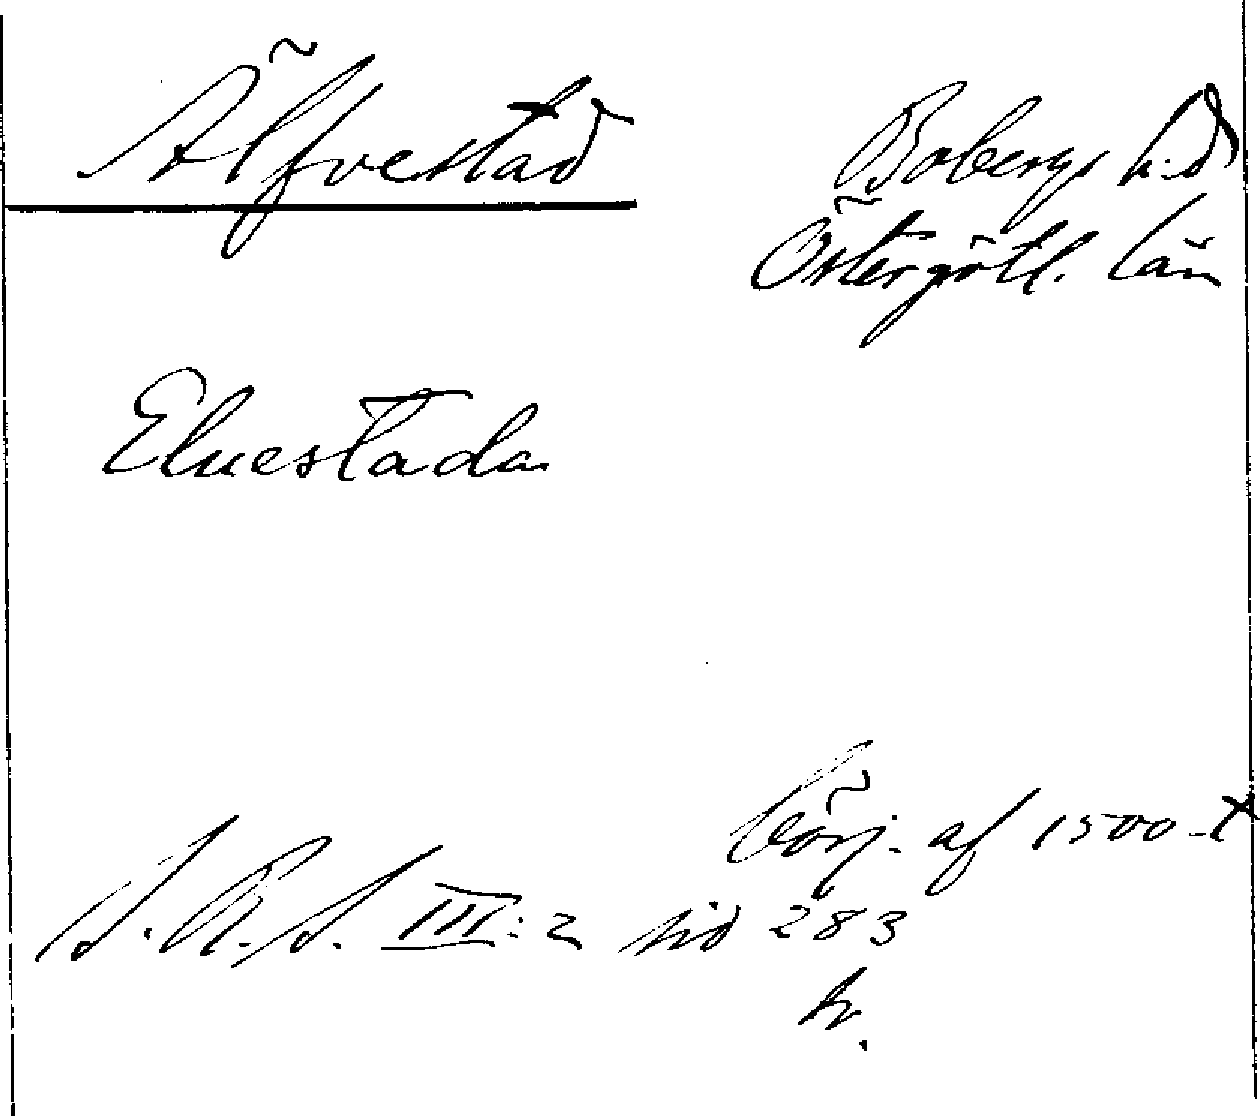 Älfvestad
Bobergs h:d
Östergötl. län
Eluestada
börj. af 1500-t
S. R. S. III: 2 sid 283